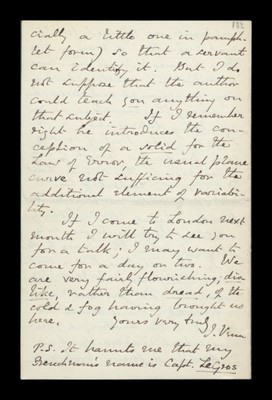 132
cially a little one in pamph-
let form) so that a servant
can identify it. But I do
not suppose that the author
could teach you anything on
that subject. If I remember
right he introduces the con-
ception of a solid for the
Law of Error, the usual plane
curve not sufficing for the
additional element of variabi-
lity.
If I come to London next
month I will try to see you
for a talk: I may want to
come for a day or two. We
are very fairly flourishing, dis
like, rather than dread, of the
cold & fog having brought us
here. Yours very truly
J. Venn
P.S. It haunts me that my
Frenchman's name is Capt. LeGros